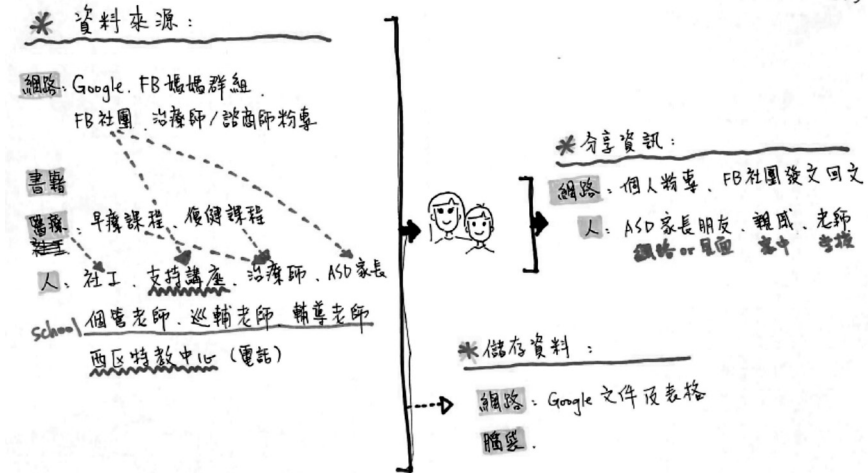 ＊ 資料來源：
網路：Google、FB媽媽群組、
FB社團、治療師/諮商師粉專
書籍
醫療：早療課程、復健課程
人：社工、支持講座、治療師、ASD家長
school 個管老師、巡輔老師、輔導老師
西区特教中心（電話）
＊分享資訊：
網路：個人粉專、FB社團發文回文
人：ASD家長朋友、親戚、老師
網路or見面 家中 學校
＊儲存資料：
網路：Google文件及表格
腦袋.